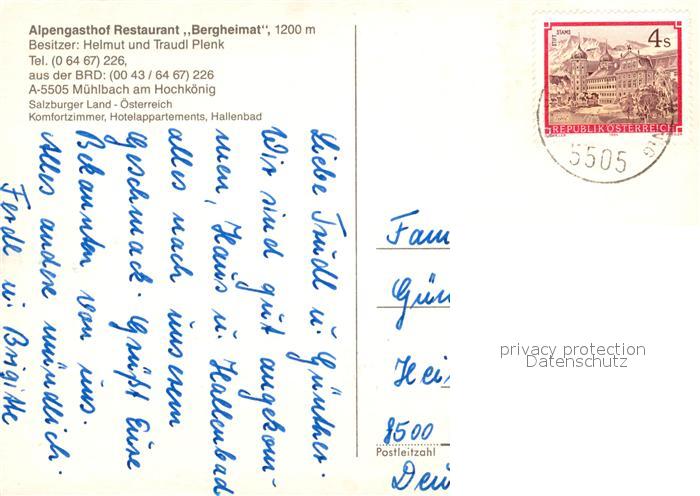 Alpengasthof Restaurant „Bergheimat“, 1200 m
Besitzer: Helmut und Traudl Plenk
Tel. (0 64 67) 226,
aus der BRD: (00 43 / 64 67) 226
A-5505 Mühlbach am Hochkönig
Salzburger Land - Österreich
Komfortzimmer, Hotelappartements, Hallenbad
Liebe Trudl u. Günther.
Wir sind gut angekom-
men, Haus u. Hallenbad
alles nach unserem
Geschmack. Grüßt Eure
Bekannten von uns.
Alles andere mündlich.
Ferde u. Brigitte
STIFT STAMS
4 S
REPUBLIK ÖSTERREICH
5505
Fam
Gün
Hei
8500
Postleitzahl
Deu
privacy protection
Datenschutz